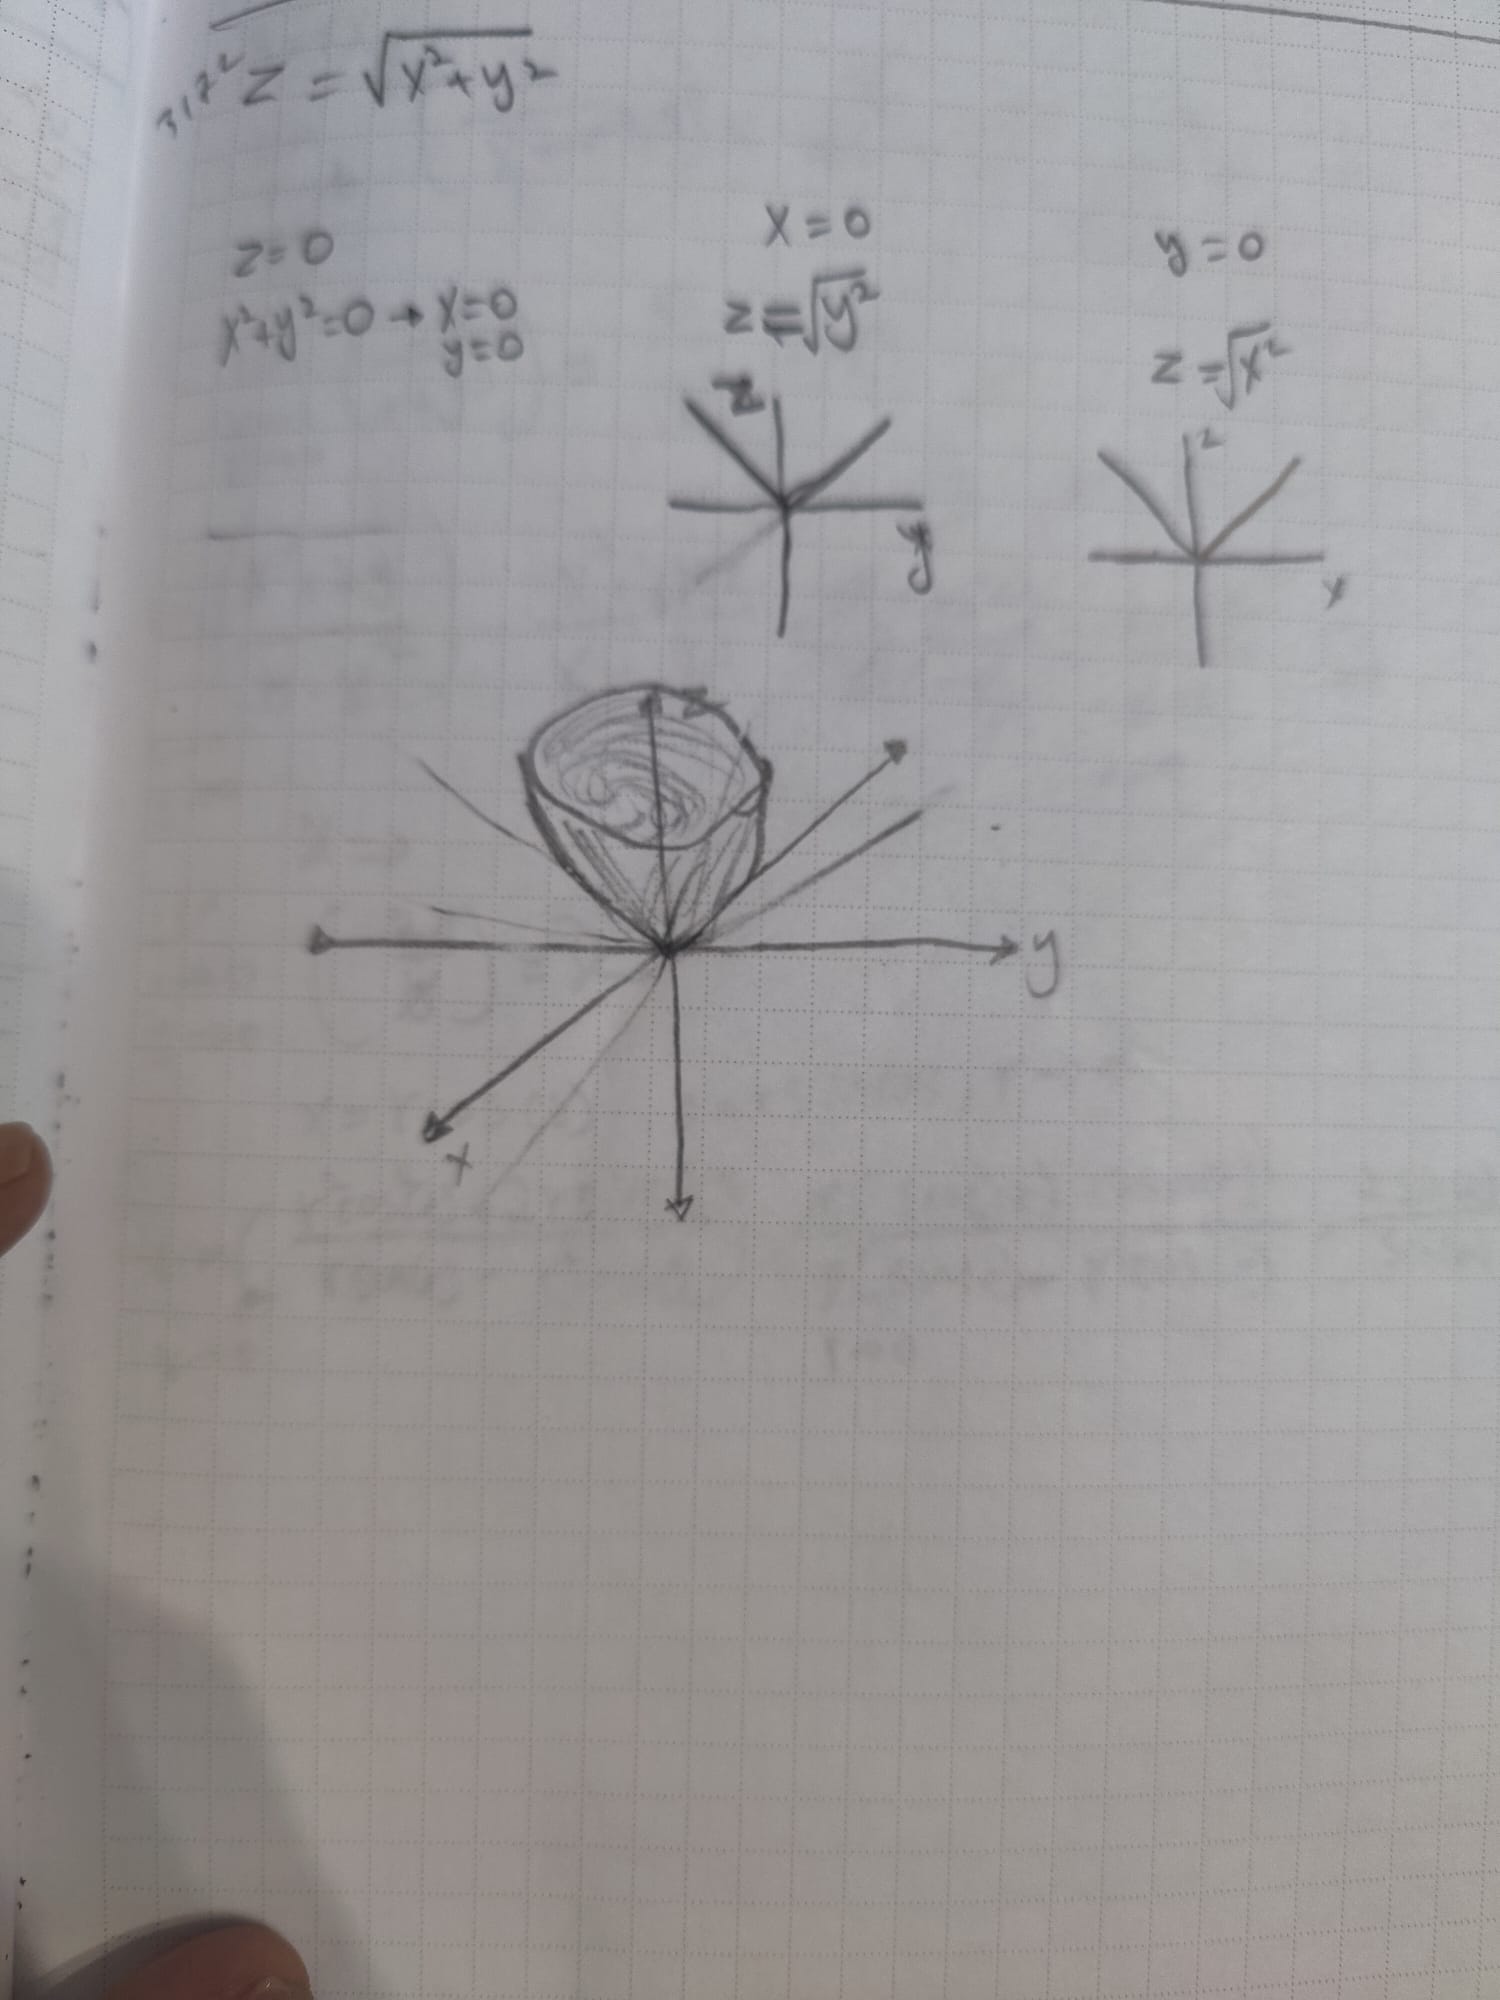 z = √x²+y²
z=0
x²+y²=0 → x=0
y=0
x=0
z=√y²
z
y
y=0
z=√x²
z
x
z
y
x